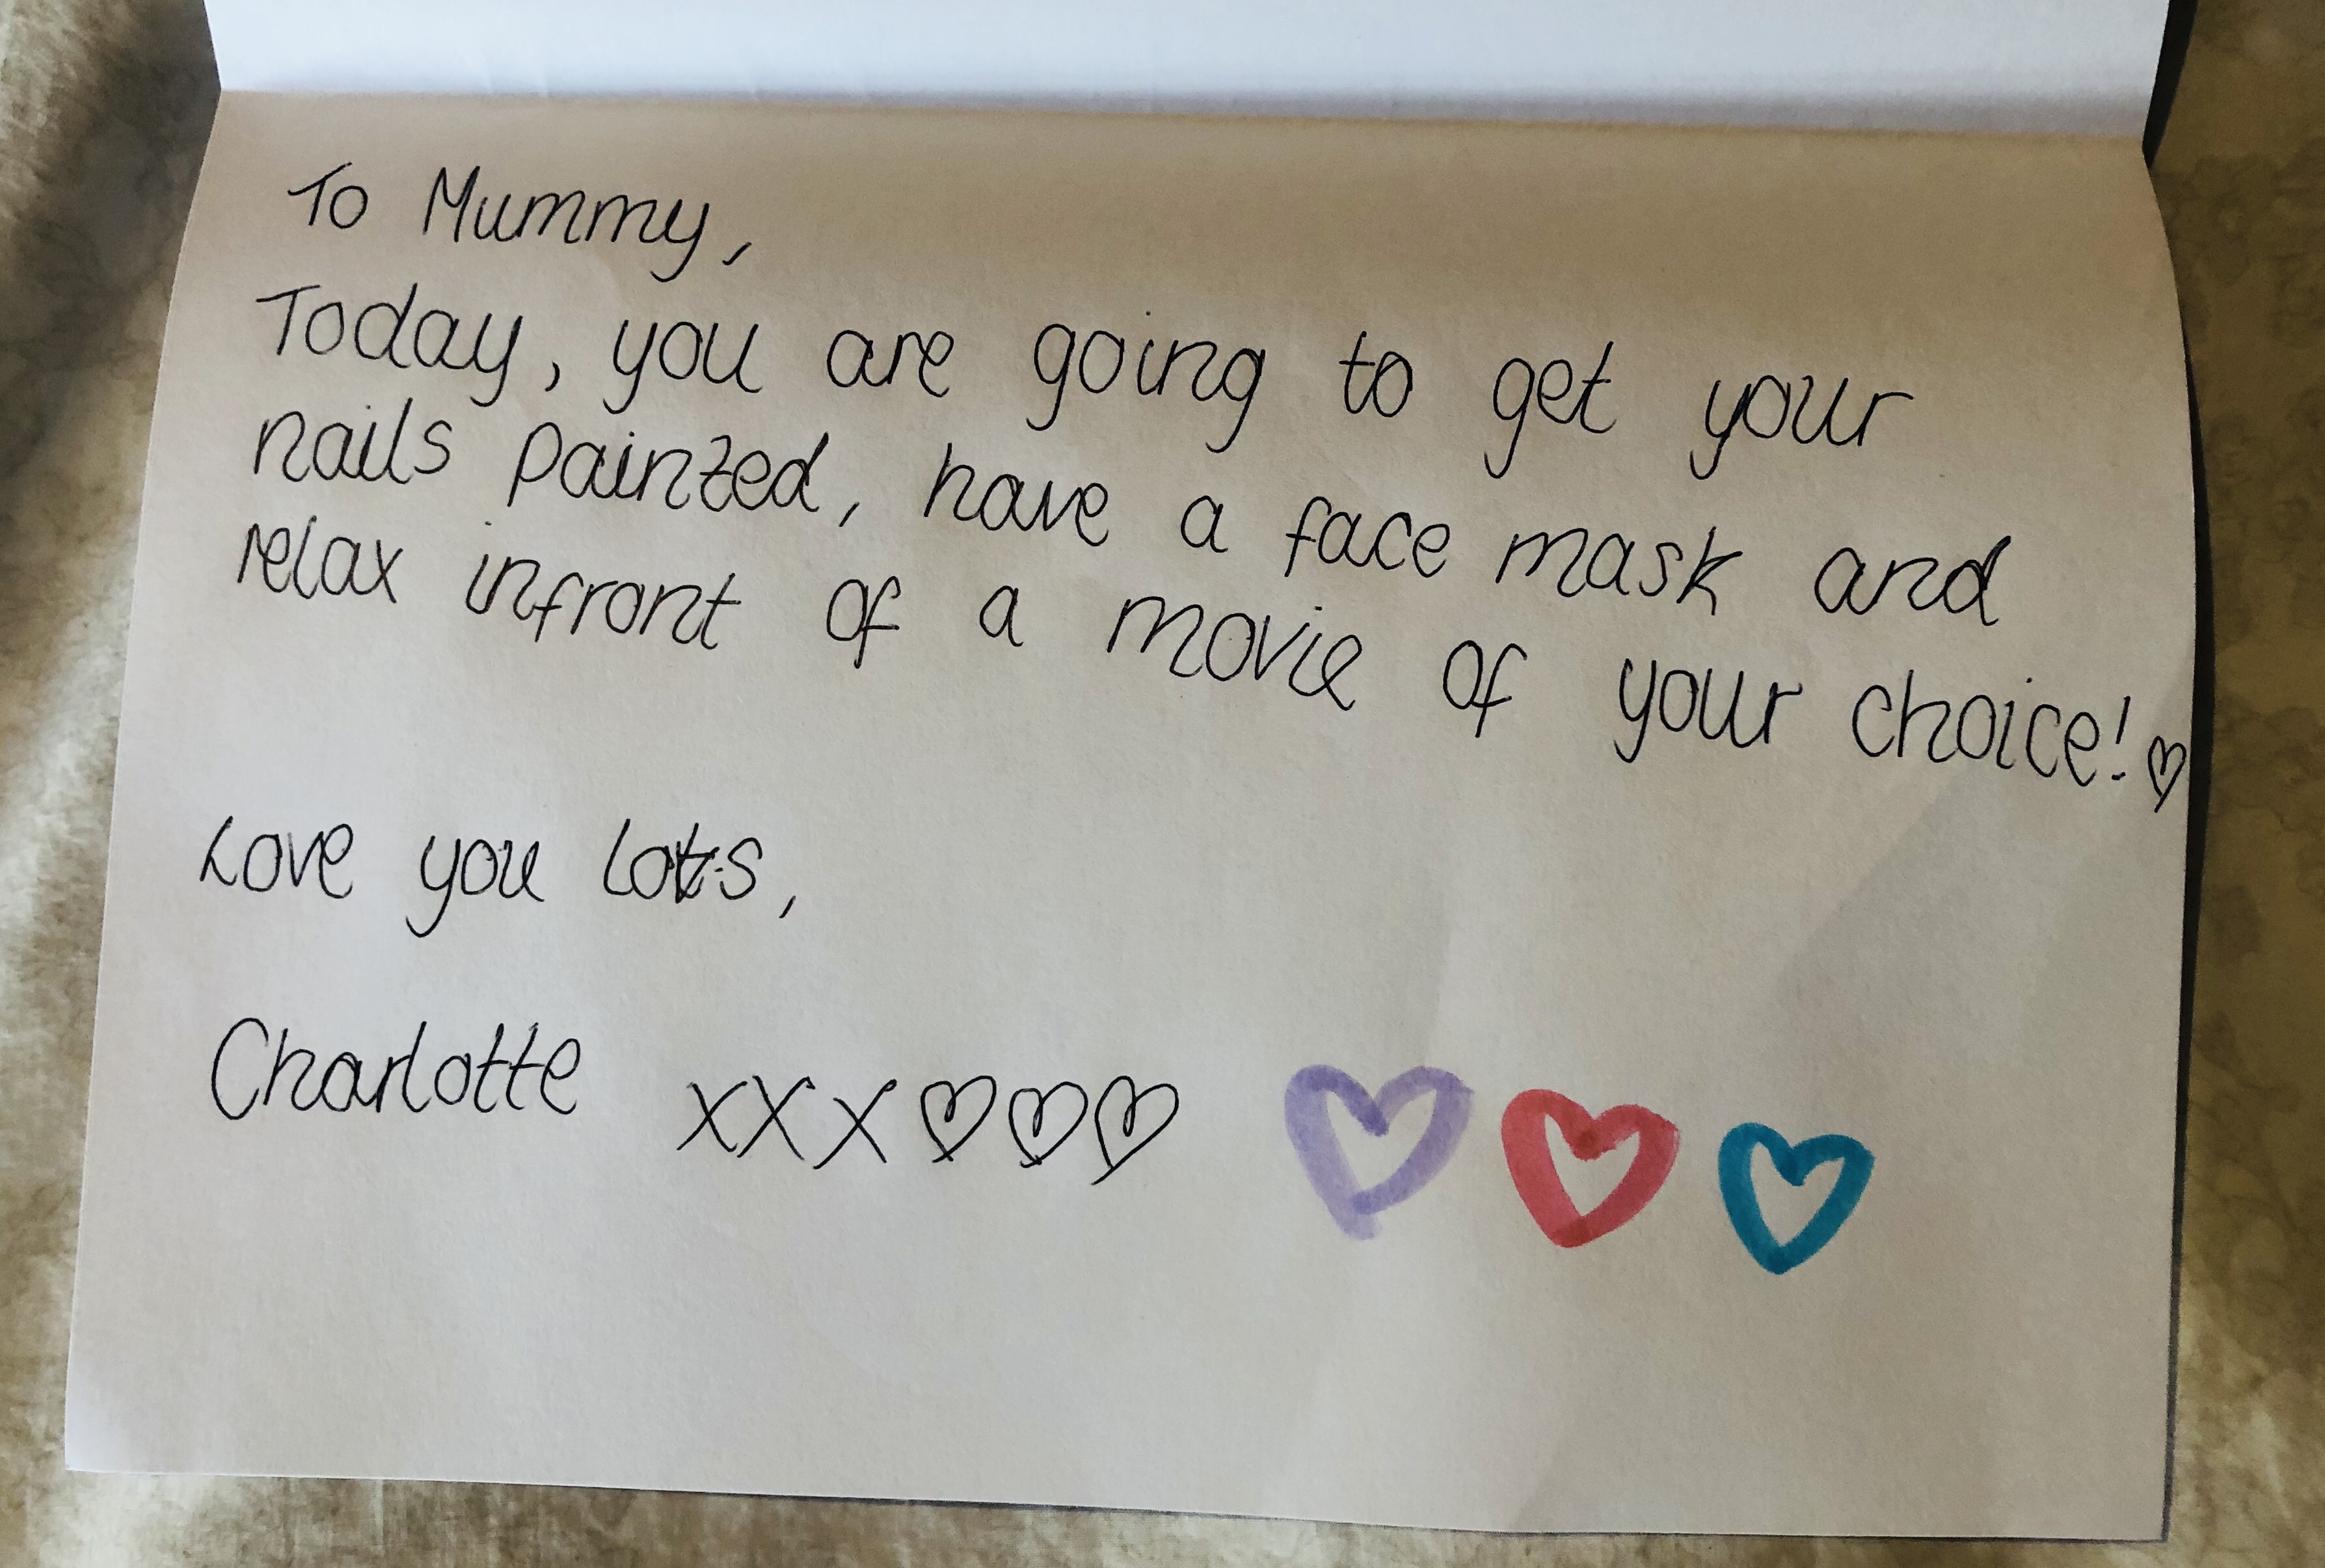 To Mummy,
Today, you are going to get your
nails painted, have a face mask and
relax infront of a movie of your choice! ♡
Love you lots,
Charlotte xxx♡♡♡